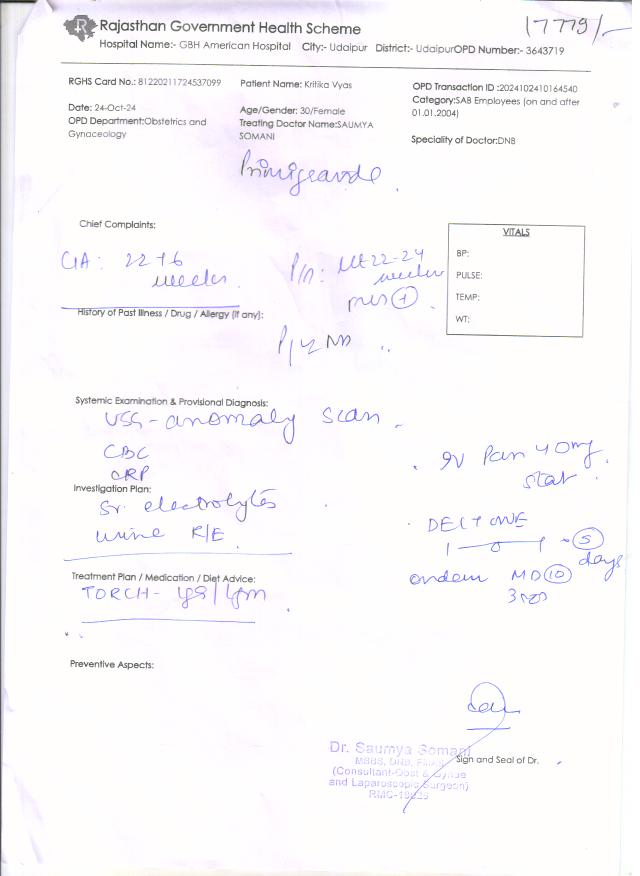 Rajasthan Government Health Scheme
17779/-
Hospital Name:- GBH American Hospital City:- Udaipur District:- UdaipurOPD Number:- 3643719
RGHS Card No.: 81220211724537099
Patient Name: Kritika Vyas
OPD Transaction ID :2024102410164540
Category:SAB Employees (on and after 01.01.2004)
Date: 24-Oct-24
Age/Gender: 30/Female
OPD Department:Obstetrics and Gynaceology
Treating Doctor Name:SAUMYA SOMANI
Speciality of Doctor:DNB
Chief Complaints:
VITALS
BP:
PULSE:
TEMP:
WT:
GA: 22+6
weeks
P/A: 22-24
weeks
History of Past Illness / Drug / Allergy (if any):
Systemic Examination & Provisional Diagnosis:
USG-anomaly scan
CBC
CRP
Investigation Plan:
Sr. electrolytes
urine R/E
Treatment Plan / Medication / Diet Advice:
TORCH- IgG/IgM
IV Pan 40mg
stat
1 - 0 - 1 - 5
days
MD 10
Preventive Aspects:
Dr. Saumya Somani
MBBS, DNB,
(Consultant-Obst & Gynae
and Laparoscopic Surgeon)
Sign and Seal of Dr.